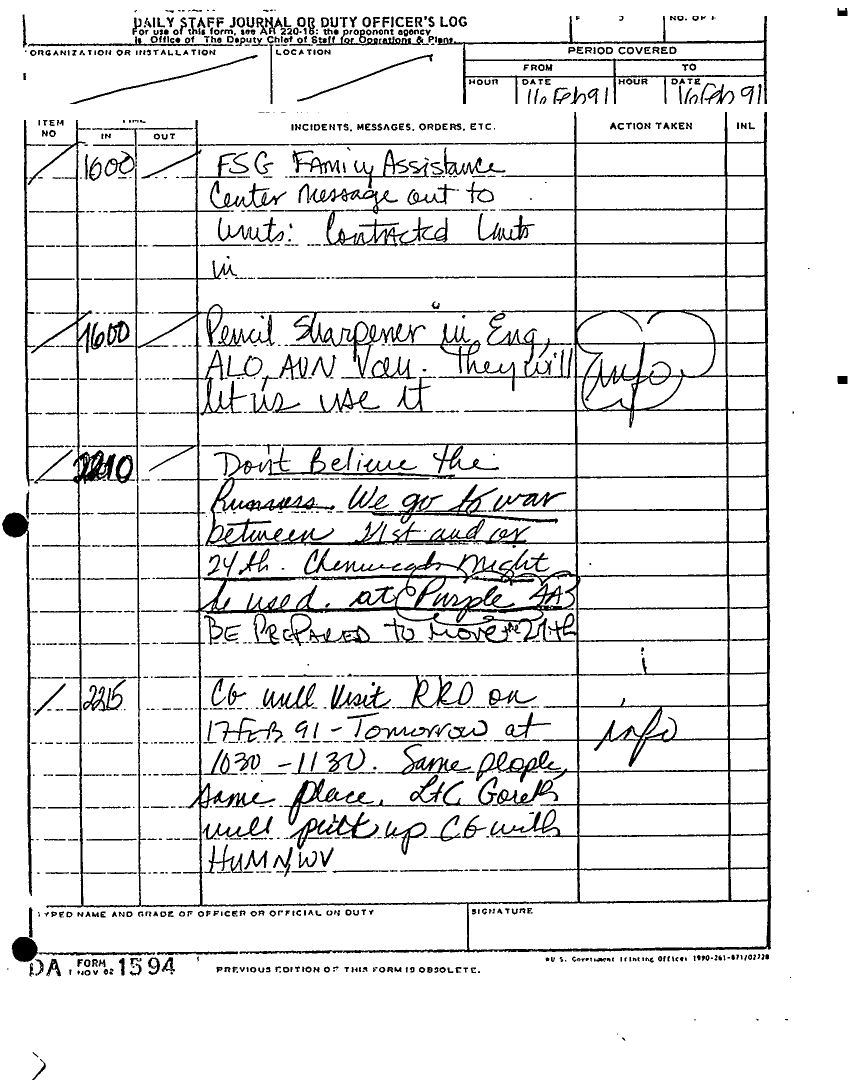 DAILY STAFF JOURNAL OR DUTY OFFICER'S LOG
For use of this form, see AR 220-15; the proponent agency
is Office of The Deputy Chief of Staff for Operations & Plans.
NO. OF
ORGANIZATION OR INSTALLATION
LOCATION
PERIOD COVERED
FROM
TO
HOUR
DATE
HOUR
DATE
16 Feb 91
16 Feb 91
ITEM NO
TIME
IN
OUT
INCIDENTS, MESSAGES, ORDERS, ETC.
ACTION TAKEN
INL
1600 FSG Family Assistance
Center Message out to
Units: Contracted Units
in
1600 Pencil Sharpener in Eng,
ALO, AVN Van. They will
let us use it
info
2210 Don't Believe the
Rumors. We go to war
between 21st and or
24th. Chemicals might
be used. at Purple
BE PREPARED TO MOVE the 27th
2215 CG will visit RRO on
17 FEB 91 - Tomorrow at
1030 - 1130. Same people,
same place. LtC
will pick up CG with
HUMNWV
info
TYPED NAME AND GRADE OF OFFICER OR OFFICIAL ON DUTY
SIGNATURE
DA FORM 1594
1 NOV 62
PREVIOUS EDITION OF THIS FORM IS OBSOLETE.
*U.S. Government Printing Office: 1990-261-871/02728